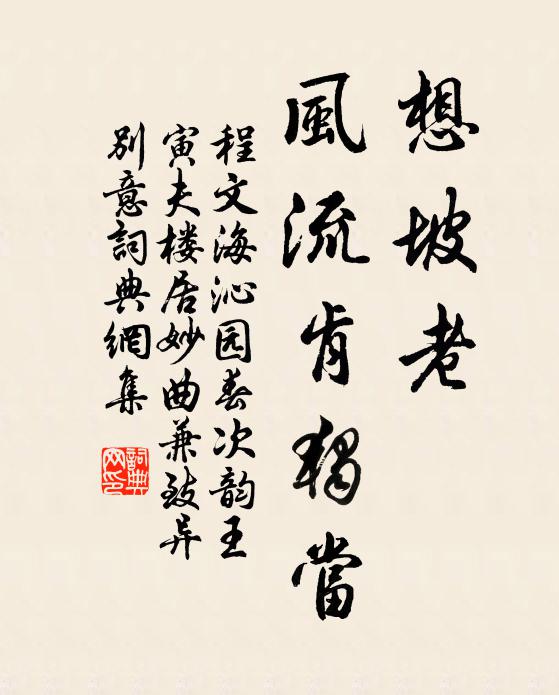 想坡老
風流肯獨當
程文海沁园春次韵王
寅夫楼居妙曲兼致异
别意詞典網集
詞典網印